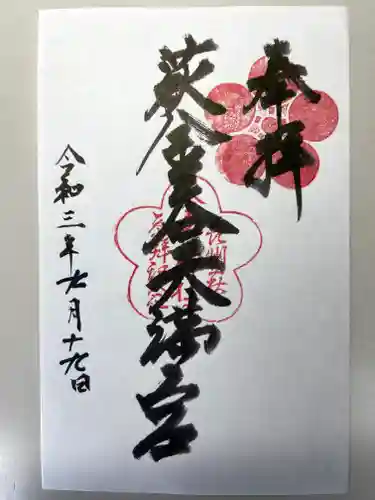 奉拝
萩金谷天満宮
令和三年七月十九日